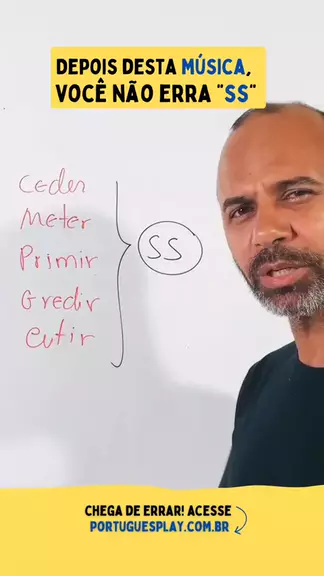 DEPOIS DESTA MÚSICA,
VOCÊ NÃO ERRA "SS"
Ceder
Meter
Primir
Gredir
Cutir
SS
CHEGA DE ERRAR! ACESSE
PORTUGUESPLAY.COM.BR